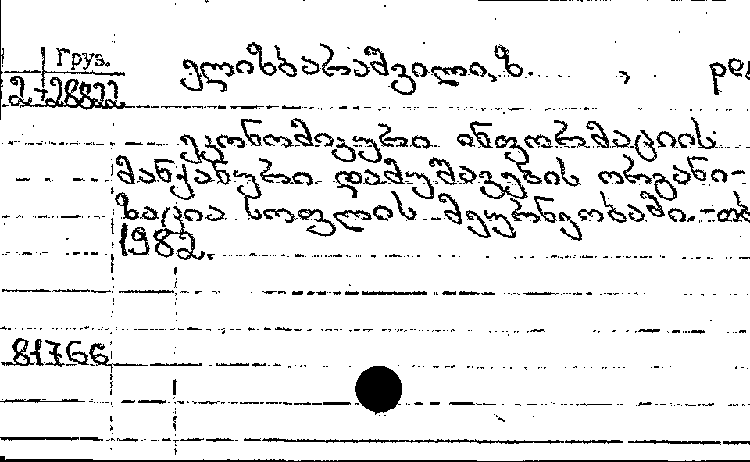 Груз.
2-28822
ელიზბარაშვილი, ზ. , ред
ეკონომიკური ინფორმაციის
მანქანური დამუშავების ორგანი-
ზაცია სოფლის მეურნეობაში.-თბ
1982.
81766